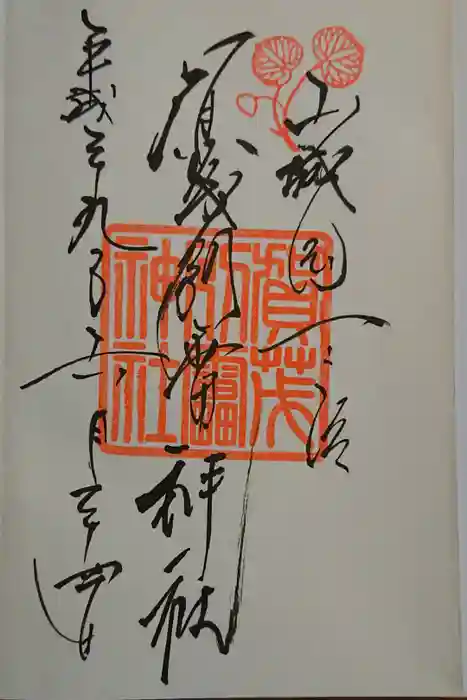 山城国一之宮
賀茂別雷神社
平成二十九年五月二十四日
賀茂
別雷
神社